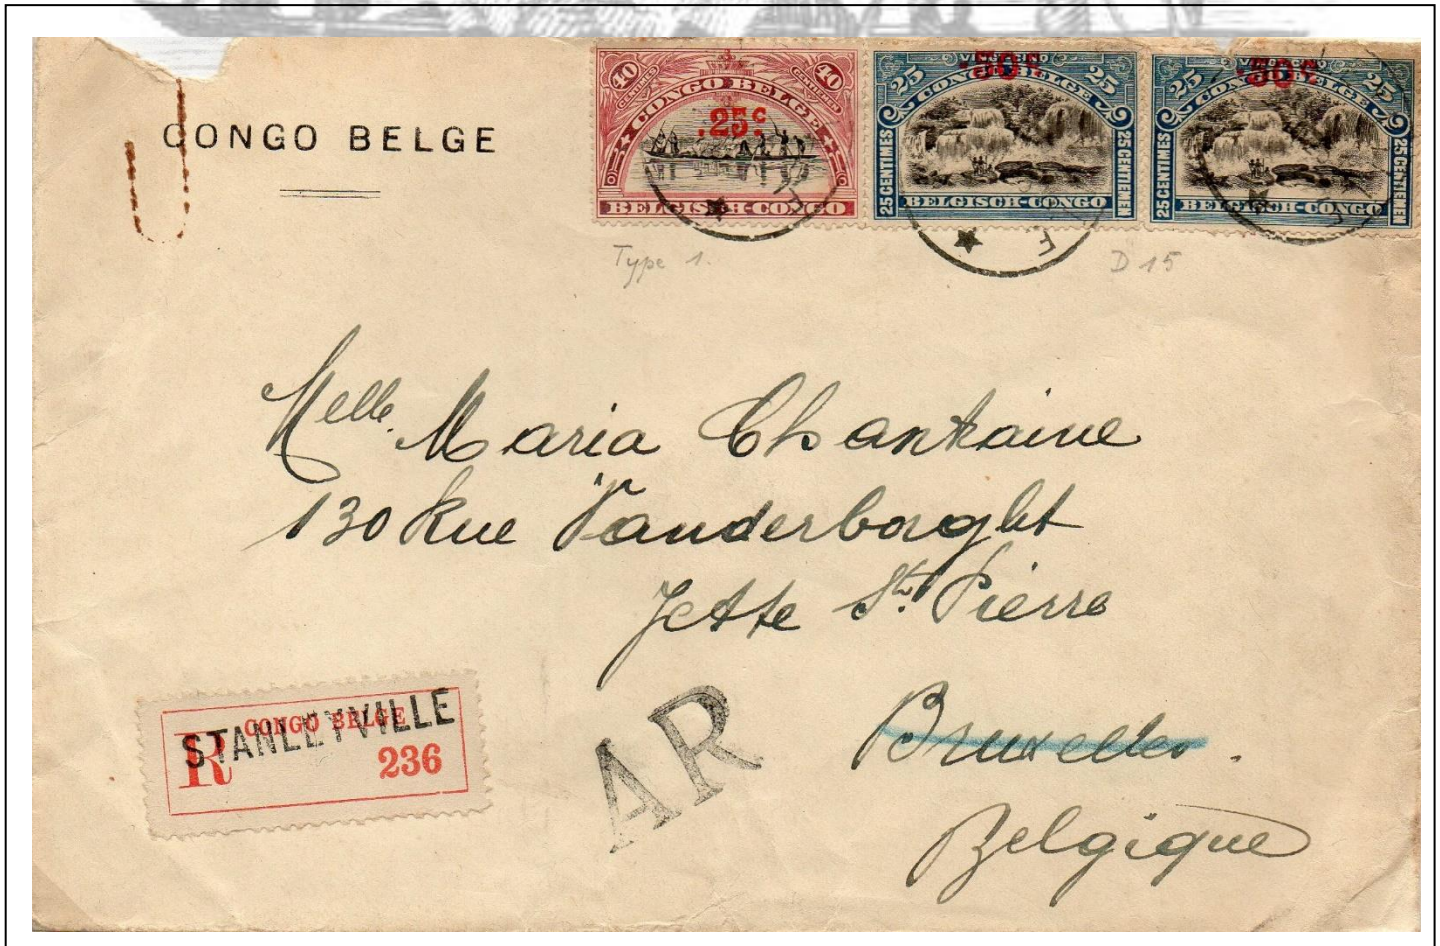 CONGO BELGE
40 40
CENTIMES CENTIEMEN
CONGO BELGE
.25c
BELGISCH-CONGO
25 25
CONGO BELGE
.30c
25 CENTIMES
25 CENTIEMEN
BELGISCH-CONGO
25 25
CONGO BELGE
.30c
25 CENTIMES
25 CENTIEMEN
BELGISCH-CONGO
Type 1.
D 15
Melle. Maria Chantraine
130 Rue Vanderborght
Jette St. Pierre
Bruxelles.
Belgique
CONGO BELGE
STANLEYVILLE
R 236
AR